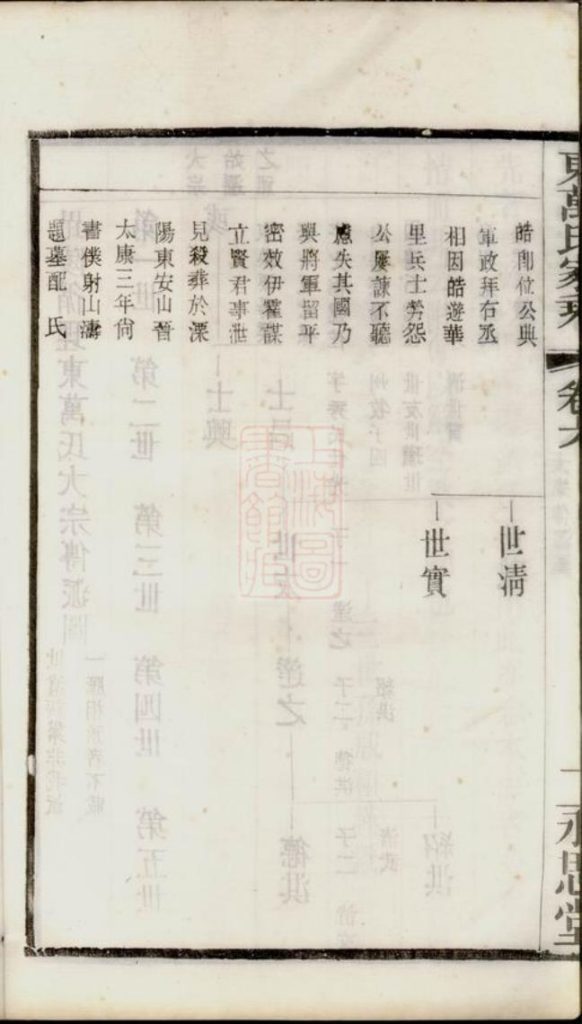 東萬氏家乘
卷六
一
永思堂
皓卽位公與
軍政拜右丞
相因皓遊華
里兵士勞怨
公屢諫不聽
慮失其國乃
與將軍留平
密效伊霍謀
立賢君事泄
見殺葬於溧
陽東安山晉
太康三年尚
書僕射山濤
題墓配 氏
世清
世實
上海圖書館藏